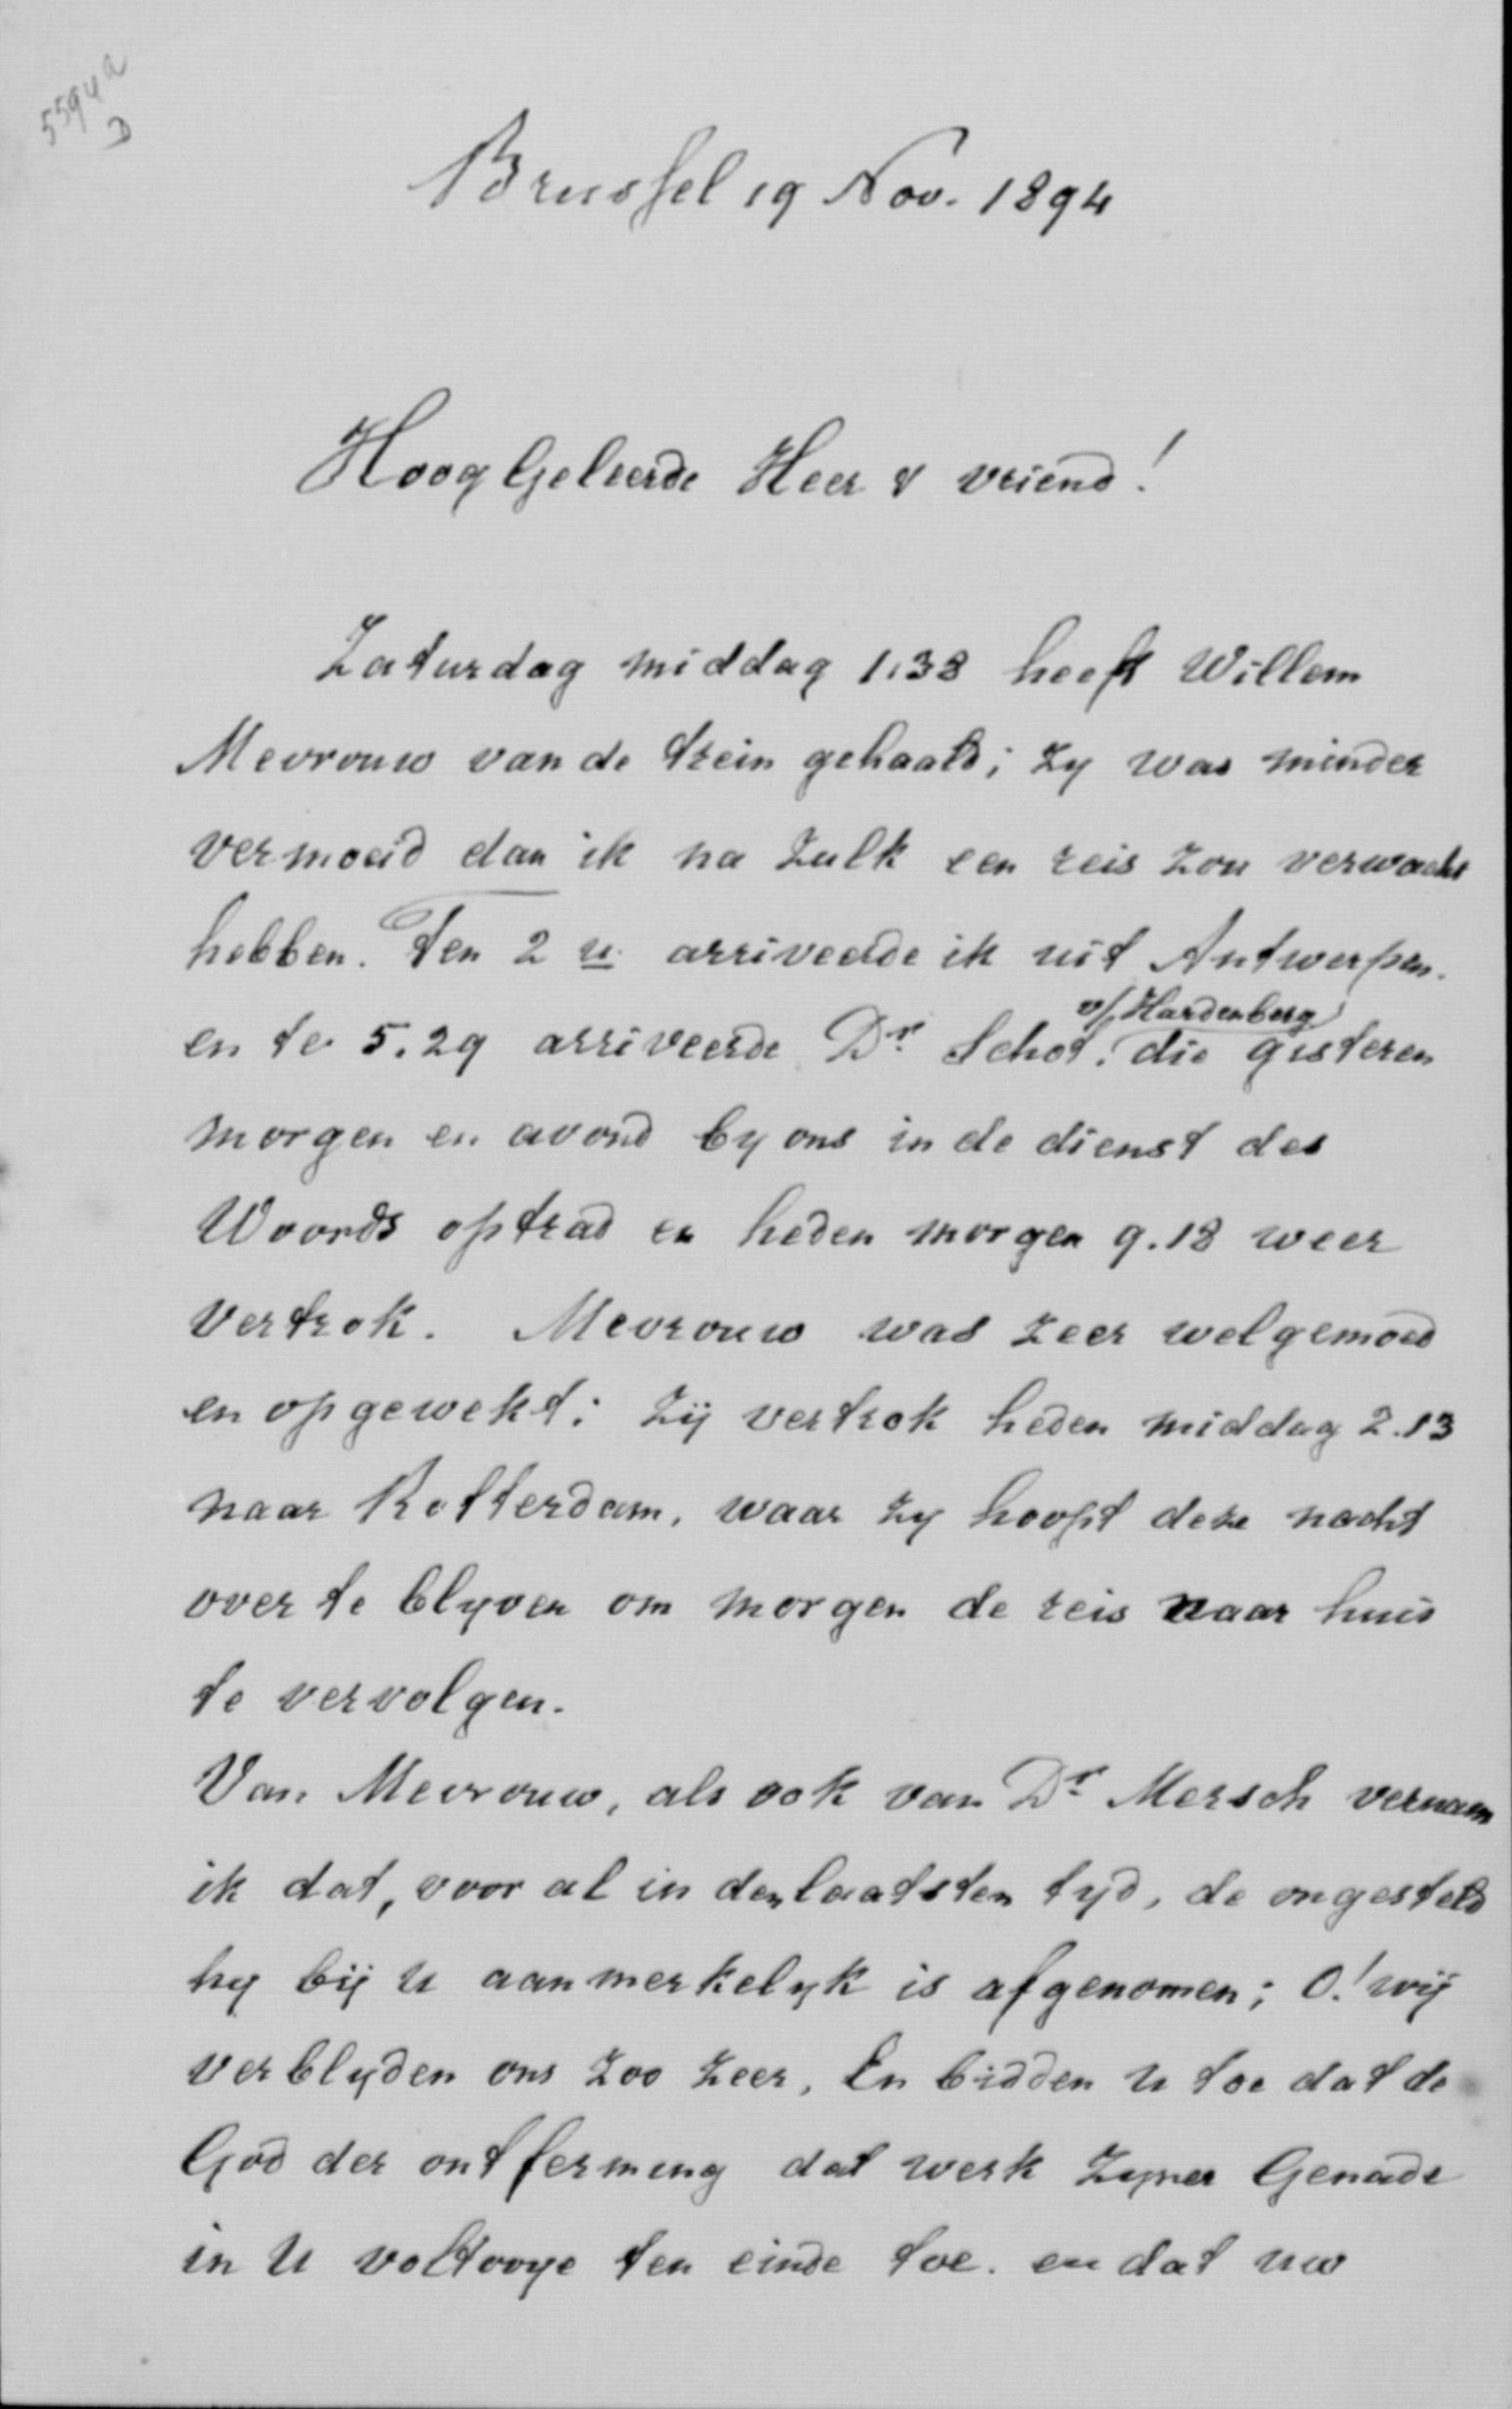 5594a
D
Brussel 19 Nov. 1894
HoogGeleerde Heer & vriend!
Zaturdag middag 1.38 heeft Willem
Mevrouw van de trein gehaald; zy was minder
vermoeid dan ik na zulk een reis zou verwacht
hebben. Ten 2 u. arriveerde ik uit Antwerpen.
v/Hardenberg
en te 5.29 arriveerde Dr. Schot. die gisteren
morgen en avond by ons in de dienst des
Woords optrad en heden morgen 9.18 weer
vertrok. Mevrouw was zeer welgemoed
en opgewekt: zij vertrok heden middag 2.13
naar Rotterdam, waar zy hoopt deze nacht
over te blyven om morgen de reis naar huis
te vervolgen.
Van Mevrouw, als ook van Dr. Mersch vernam
ik dat, voor al in den laatsten tyd, de ongesteld
hy bij u aanmerkelyk is afgenomen; O! wij
verblyden ons zoo zeer, En bidden u toe dat de
God der ontferming dat werk zyner Genade
in U voltooye ten einde toe. en dat uw